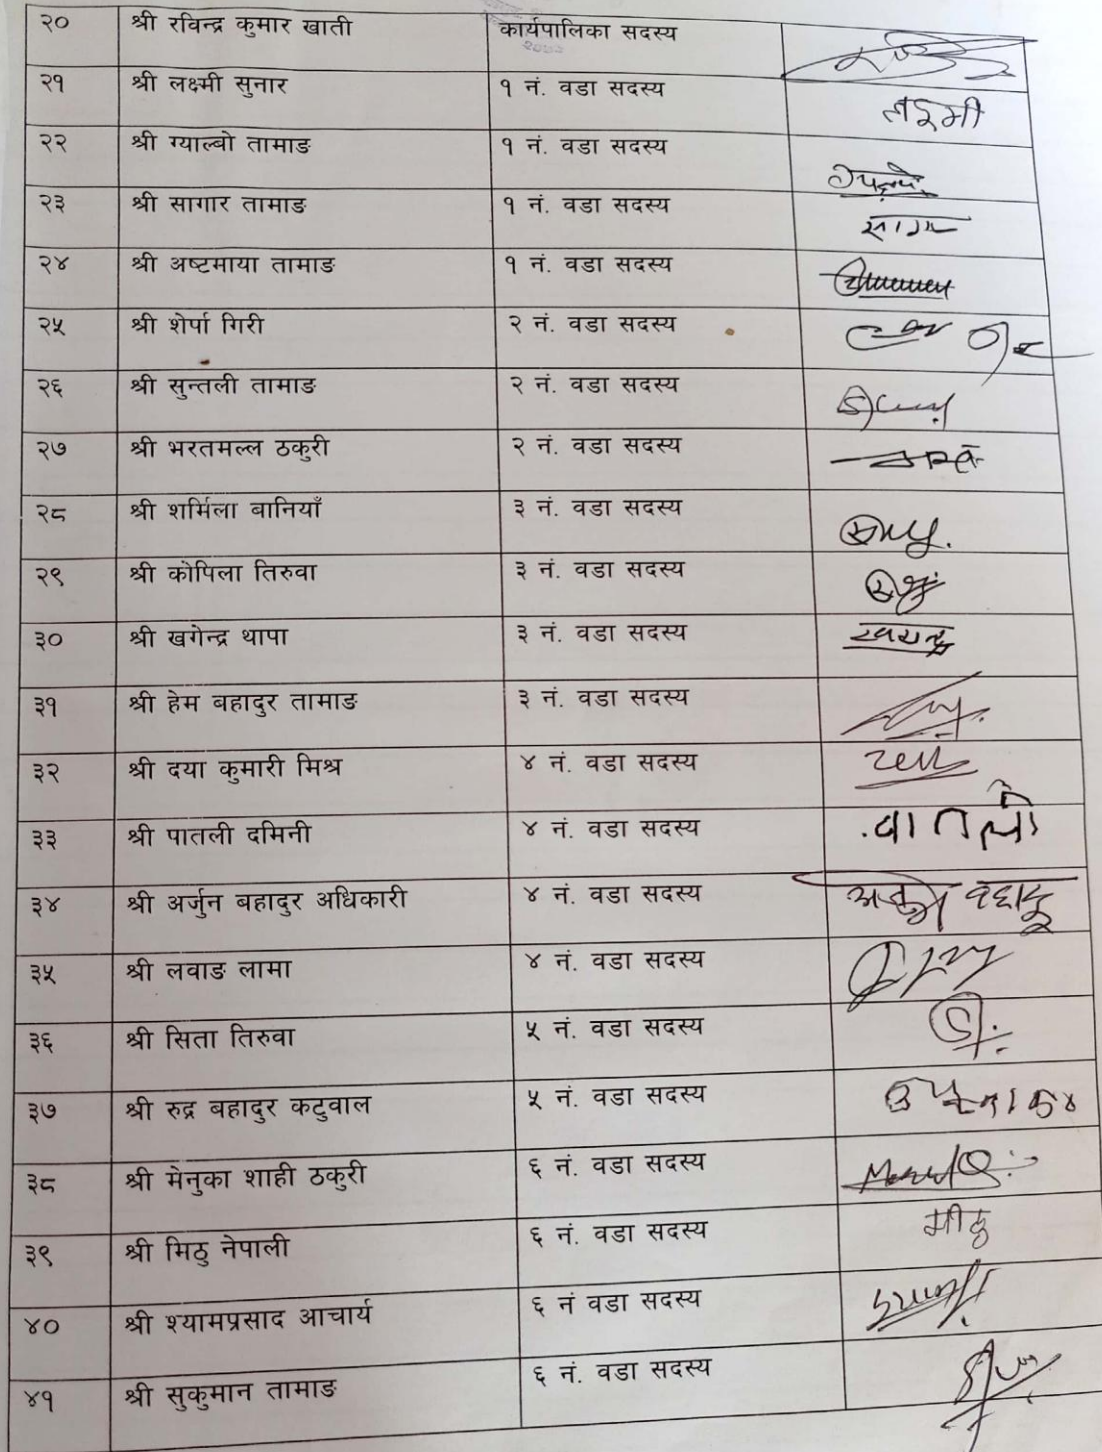 २० श्री रविन्द्र कुमार खाती कार्यपालिका सदस्य
२१ श्री लक्ष्मी सुनार १ नं. वडा सदस्य लक्ष्मी
२२ श्री ग्याल्बो तामाङ १ नं. वडा सदस्य
२३ श्री सागार तामाङ १ नं. वडा सदस्य
२४ श्री अष्टमाया तामाङ १ नं. वडा सदस्य
२५ श्री शेर्पा गिरी २ नं. वडा सदस्य
२६ श्री सुन्तली तामाङ २ नं. वडा सदस्य
२७ श्री भरतमल्ल ठकुरी २ नं. वडा सदस्य
२८ श्री शर्मिला बानियाँ ३ नं. वडा सदस्य
२९ श्री कोपिला तिरुवा ३ नं. वडा सदस्य
३० श्री खगेन्द्र थापा ३ नं. वडा सदस्य
३१ श्री हेम बहादुर तामाङ ३ नं. वडा सदस्य
३२ श्री दया कुमारी मिश्र ४ नं. वडा सदस्य
३३ श्री पातली दमिनी ४ नं. वडा सदस्य
३४ श्री अर्जुन बहादुर अधिकारी ४ नं. वडा सदस्य
३५ श्री लवाङ लामा ४ नं. वडा सदस्य
३६ श्री सिता तिरुवा ५ नं. वडा सदस्य
३७ श्री रुद्र बहादुर कटुवाल ५ नं. वडा सदस्य
३८ श्री मेनुका शाही ठकुरी ६ नं. वडा सदस्य
३९ श्री मिठु नेपाली ६ नं. वडा सदस्य मीठु
४० श्री श्यामप्रसाद आचार्य ६ नं वडा सदस्य
४१ श्री सुकुमान तामाङ ६ नं. वडा सदस्य